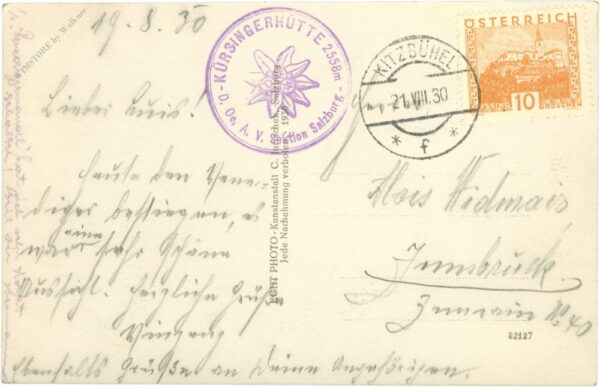 19.8.30
Lieber Luis!
Heute den Vene-
diger bestiegen, es
war eine sehr schöne
Aussicht. Herzliche Grüße
Ebenfalls Grüße an Deine Angehörigen.
KÜRSINGERHÜTTE 2558m
D. Oe. A. V. Sektion Salzburg
ECHT PHOTO - Kunstanstalt C. Jurischek, Salzburg
Jede Nachahmung verboten. 1930
KITZBÜHEL
21.VIII.30
* f *
ÖSTERREICH
10
GROSCHEN
Herrn
Alois Widmair
Innsbruck
No 40
82127
STORE by Walkner